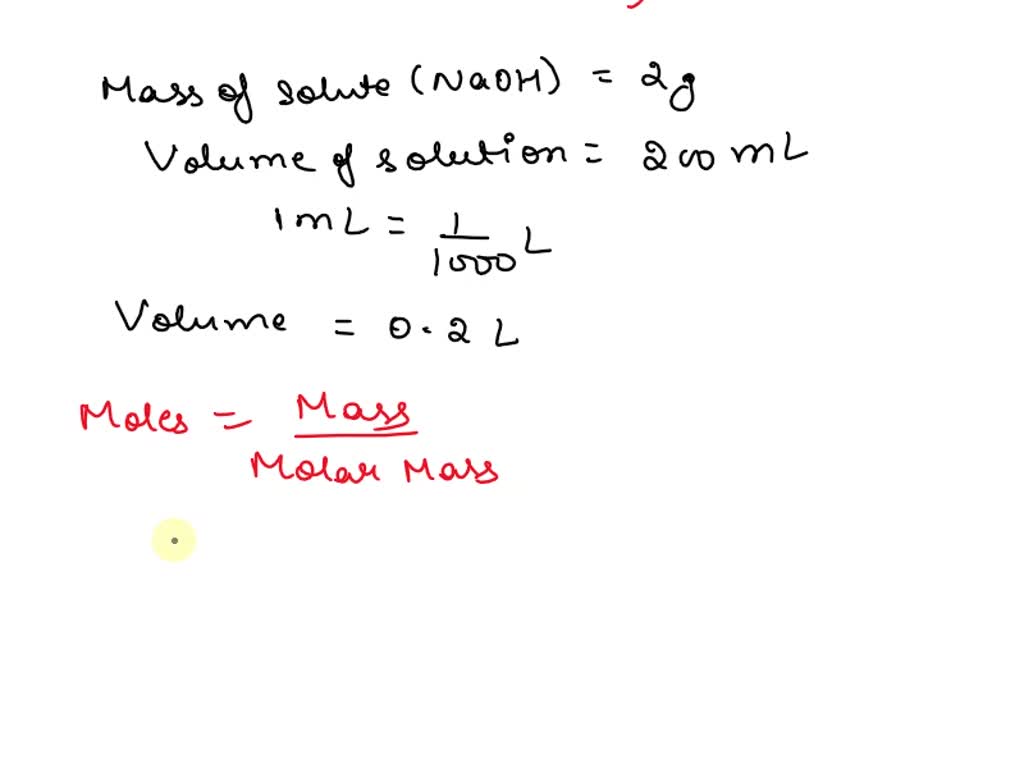 Mass of solute (NaOH) = 2g
Volume of solution = 200 mL
1 mL = 1/1000 L
Volume = 0.2 L
Moles = Mass/Molar Mass